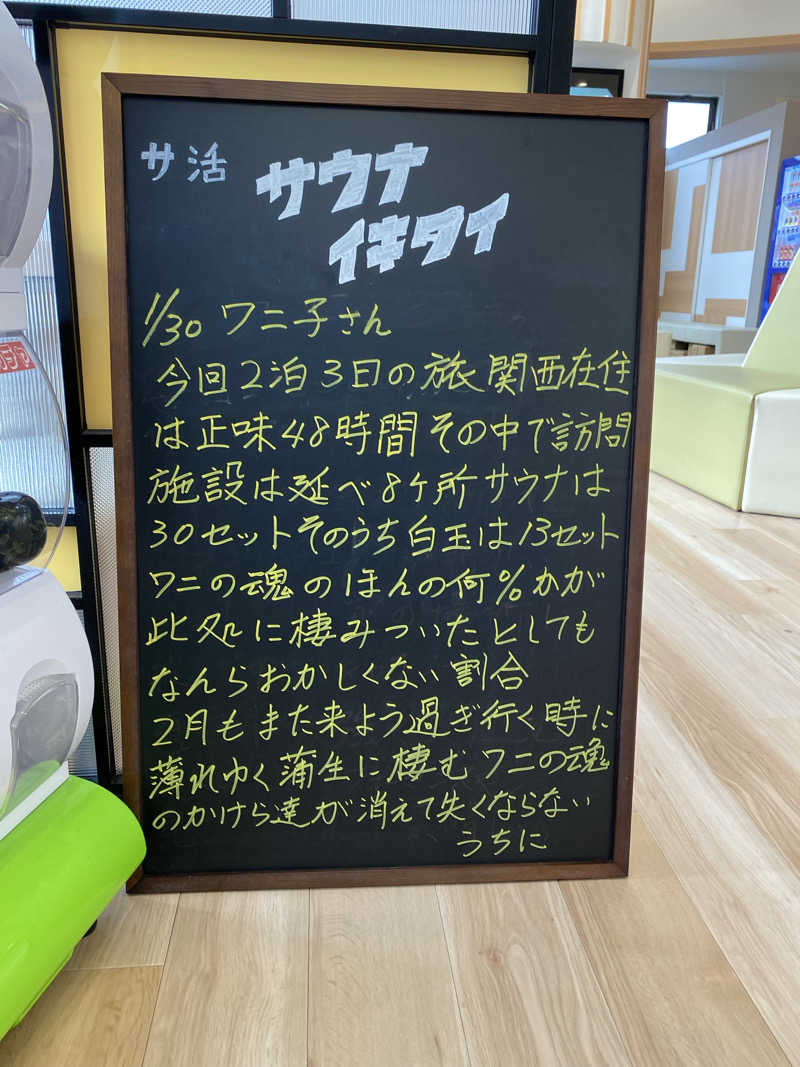 サ活
サウナ
イキタイ
1/30 ワニ子さん
今回2泊3日の旅関西在住
は正味48時間その中で訪問
施設は延べ8ヶ所サウナは
30セットそのうち白玉は13セット
ワニの魂のほんの何%かが
此処に棲みついたとしても
なんらおかしくない割合
2月もまた来よう過ぎ行く時に
薄れゆく蒲生に棲むワニの魂
のかけら達が消えて失くならない
うちに